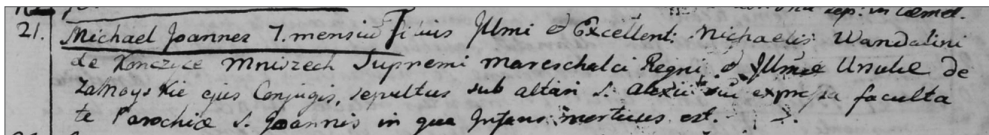 sep. in cœmet.
21. Michael Joannes 7. mensiũ filius Illmi & Excellent: Michaelis Wandalini
de Konczyce Mniszech Supremi mareschalci Regni & Illmæ Ursulæ de
Zamoyskie ejus Conjugis, sepultus sub altari S. Alexii cũ expressa faculta
te Parochiæ S. Joannis in qua Infans mortuus est.